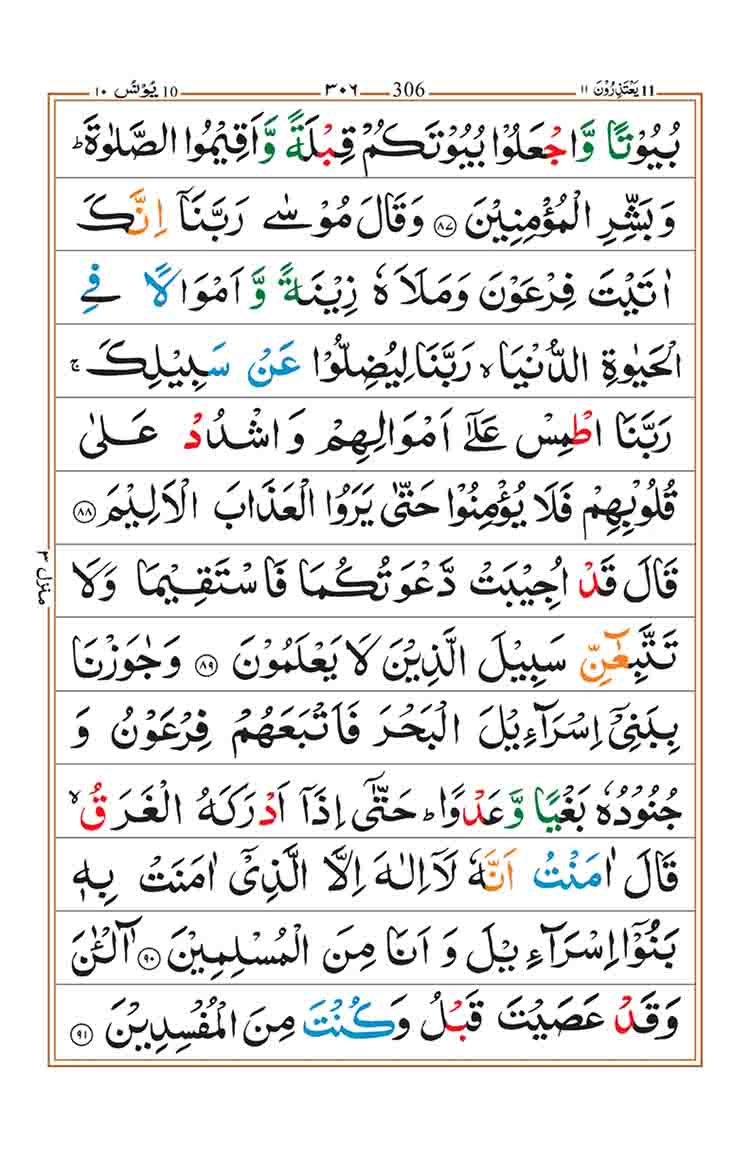 يَعْتَذِرُوْنَ ١١ 11 306 ٣٠٦ 10 يُوْنُس ١٠
بُيُوْتًا وَّاجْعَلُوْا بُيُوْتَكُمْ قِبْلَةً وَّاَقِيْمُوا الصَّلٰوةَ ؕ
وَبَشِّرِ الْمُؤْمِنِيْنَ ﴿۸۷﴾ وَقَالَ مُوْسٰى رَبَّنَاۤ اِنَّكَ
اٰتَيْتَ فِرْعَوْنَ وَمَلَاَهٗ زِيْنَةً وَّاَمْوَالًا فِى
الْحَيٰوةِ الدُّنْيَا ۙ رَبَّنَا لِيُضِلُّوْا عَنْ سَبِيْلِكَ ۚ
رَبَّنَا اطْمِسْ عَلٰٓى اَمْوَالِهِمْ وَاشْدُدْ عَلٰى
قُلُوْبِهِمْ فَلَا يُؤْمِنُوْا حَتّٰى يَرَوُا الْعَذَابَ الْاَلِيْمَ ﴿۸۸﴾
قَالَ قَدْ اُجِيْبَتْ دَّعْوَتُكُمَا فَاسْتَقِيْمَا وَلَا
تَتَّبِعٰٓنِّ سَبِيْلَ الَّذِيْنَ لَا يَعْلَمُوْنَ ﴿۸۹﴾ وَجٰوَزْنَا
بِبَنِىْۤ اِسْرَآءِيْلَ الْبَحْرَ فَاَتْبَعَهُمْ فِرْعَوْنُ وَ
جُنُوْدُهٗ بَغْيًا وَّعَدْوًا ؕ حَتّٰىۤ اِذَاۤ اَدْرَكَهُ الْغَرَقُ ۙ
قَالَ اٰمَنْتُ اَنَّهٗ لَاۤ اِلٰهَ اِلَّا الَّذِىْۤ اٰمَنَتْ بِهٖ
بَنُوْۤا اِسْرَآءِيْلَ وَاَنَا مِنَ الْمُسْلِمِيْنَ ﴿۹۰﴾ آٰلْـٰٔنَ
وَقَدْ عَصَيْتَ قَبْلُ وَكُنْتَ مِنَ الْمُفْسِدِيْنَ ﴿۹۱﴾
منزل ٣